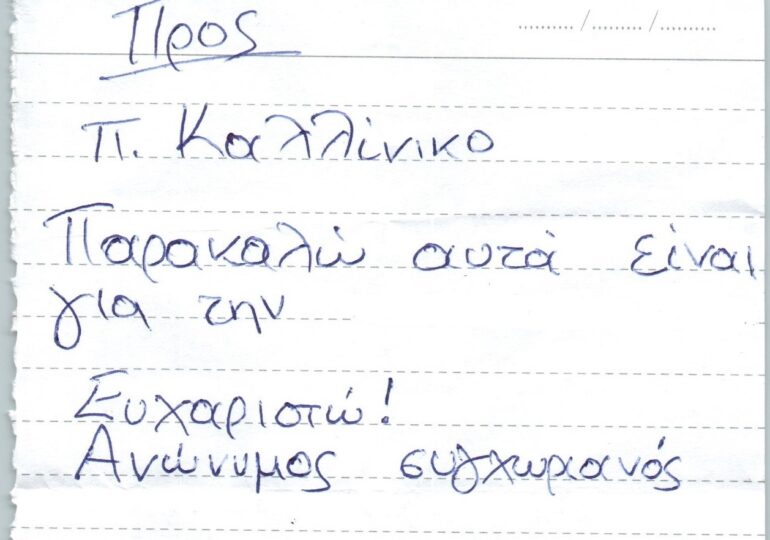 Προς
......... /......... /.........
π. Καλλίνικο
Παρακαλώ αυτά είναι
για την
Ευχαριστώ!
Ανώνυμος συγχωριανός